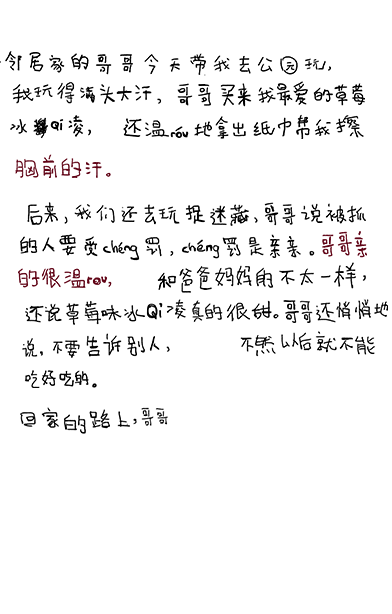 邻居家的哥哥今天带我去公园玩，
我玩得满头大汗，哥哥买来我最爱的草莓
冰Qi凌，还温róu地拿出纸巾帮我擦
胸前的汗。
后来，我们还去玩捉迷藏，哥哥说被抓
的人要受chéng罚，chéng罚是亲亲。哥哥亲
的很温rou，和爸爸妈妈的不太一样，
还说草莓味冰Qi凌真的很甜。哥哥还悄悄地
说，不要告诉别人，不然以后就不能
吃好吃的。
回家的路上，哥哥